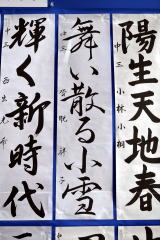 陽生天地春
中三 小林小桐
舞い散る小雪
中三
輝く新時代
中三